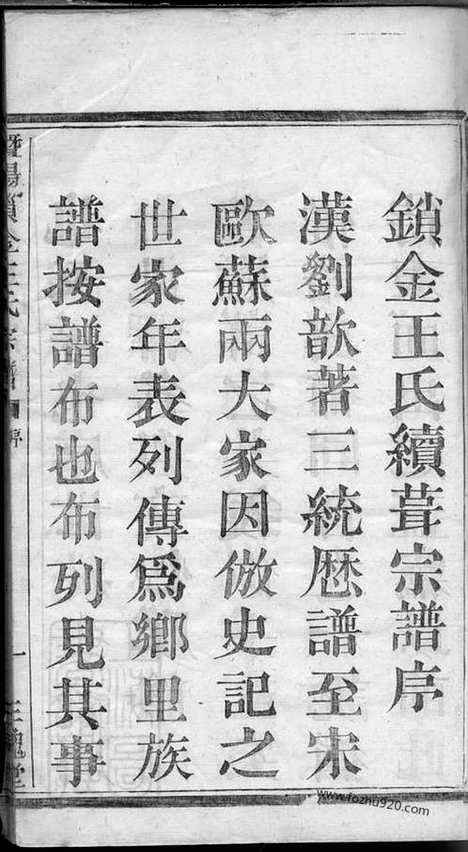 鎖金王氏續葺宗譜序
漢劉歆著三統厯譜至宋
歐蘇兩大家因倣史記之
世家年表列傳爲鄉里族
譜按譜布也布列見其事
暨陽鎖金王氏宗譜
序
一
www.fozhu920.com